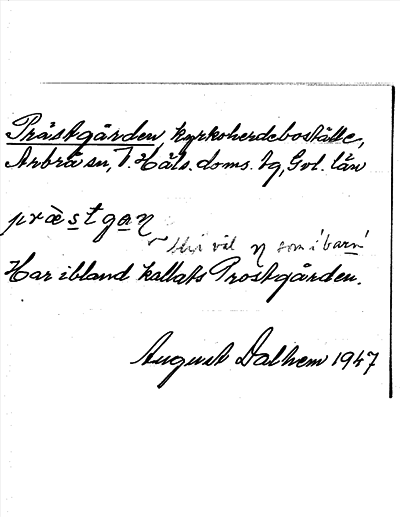 Prästgården, kyrkoherdeboställe,
Arbrå sn, V. Häls. doms. tg, Gvl. län
præstgaŋ
väl ŋ som i 'barn'
Har ibland kallats Prostgården.
August Dalhem 1947